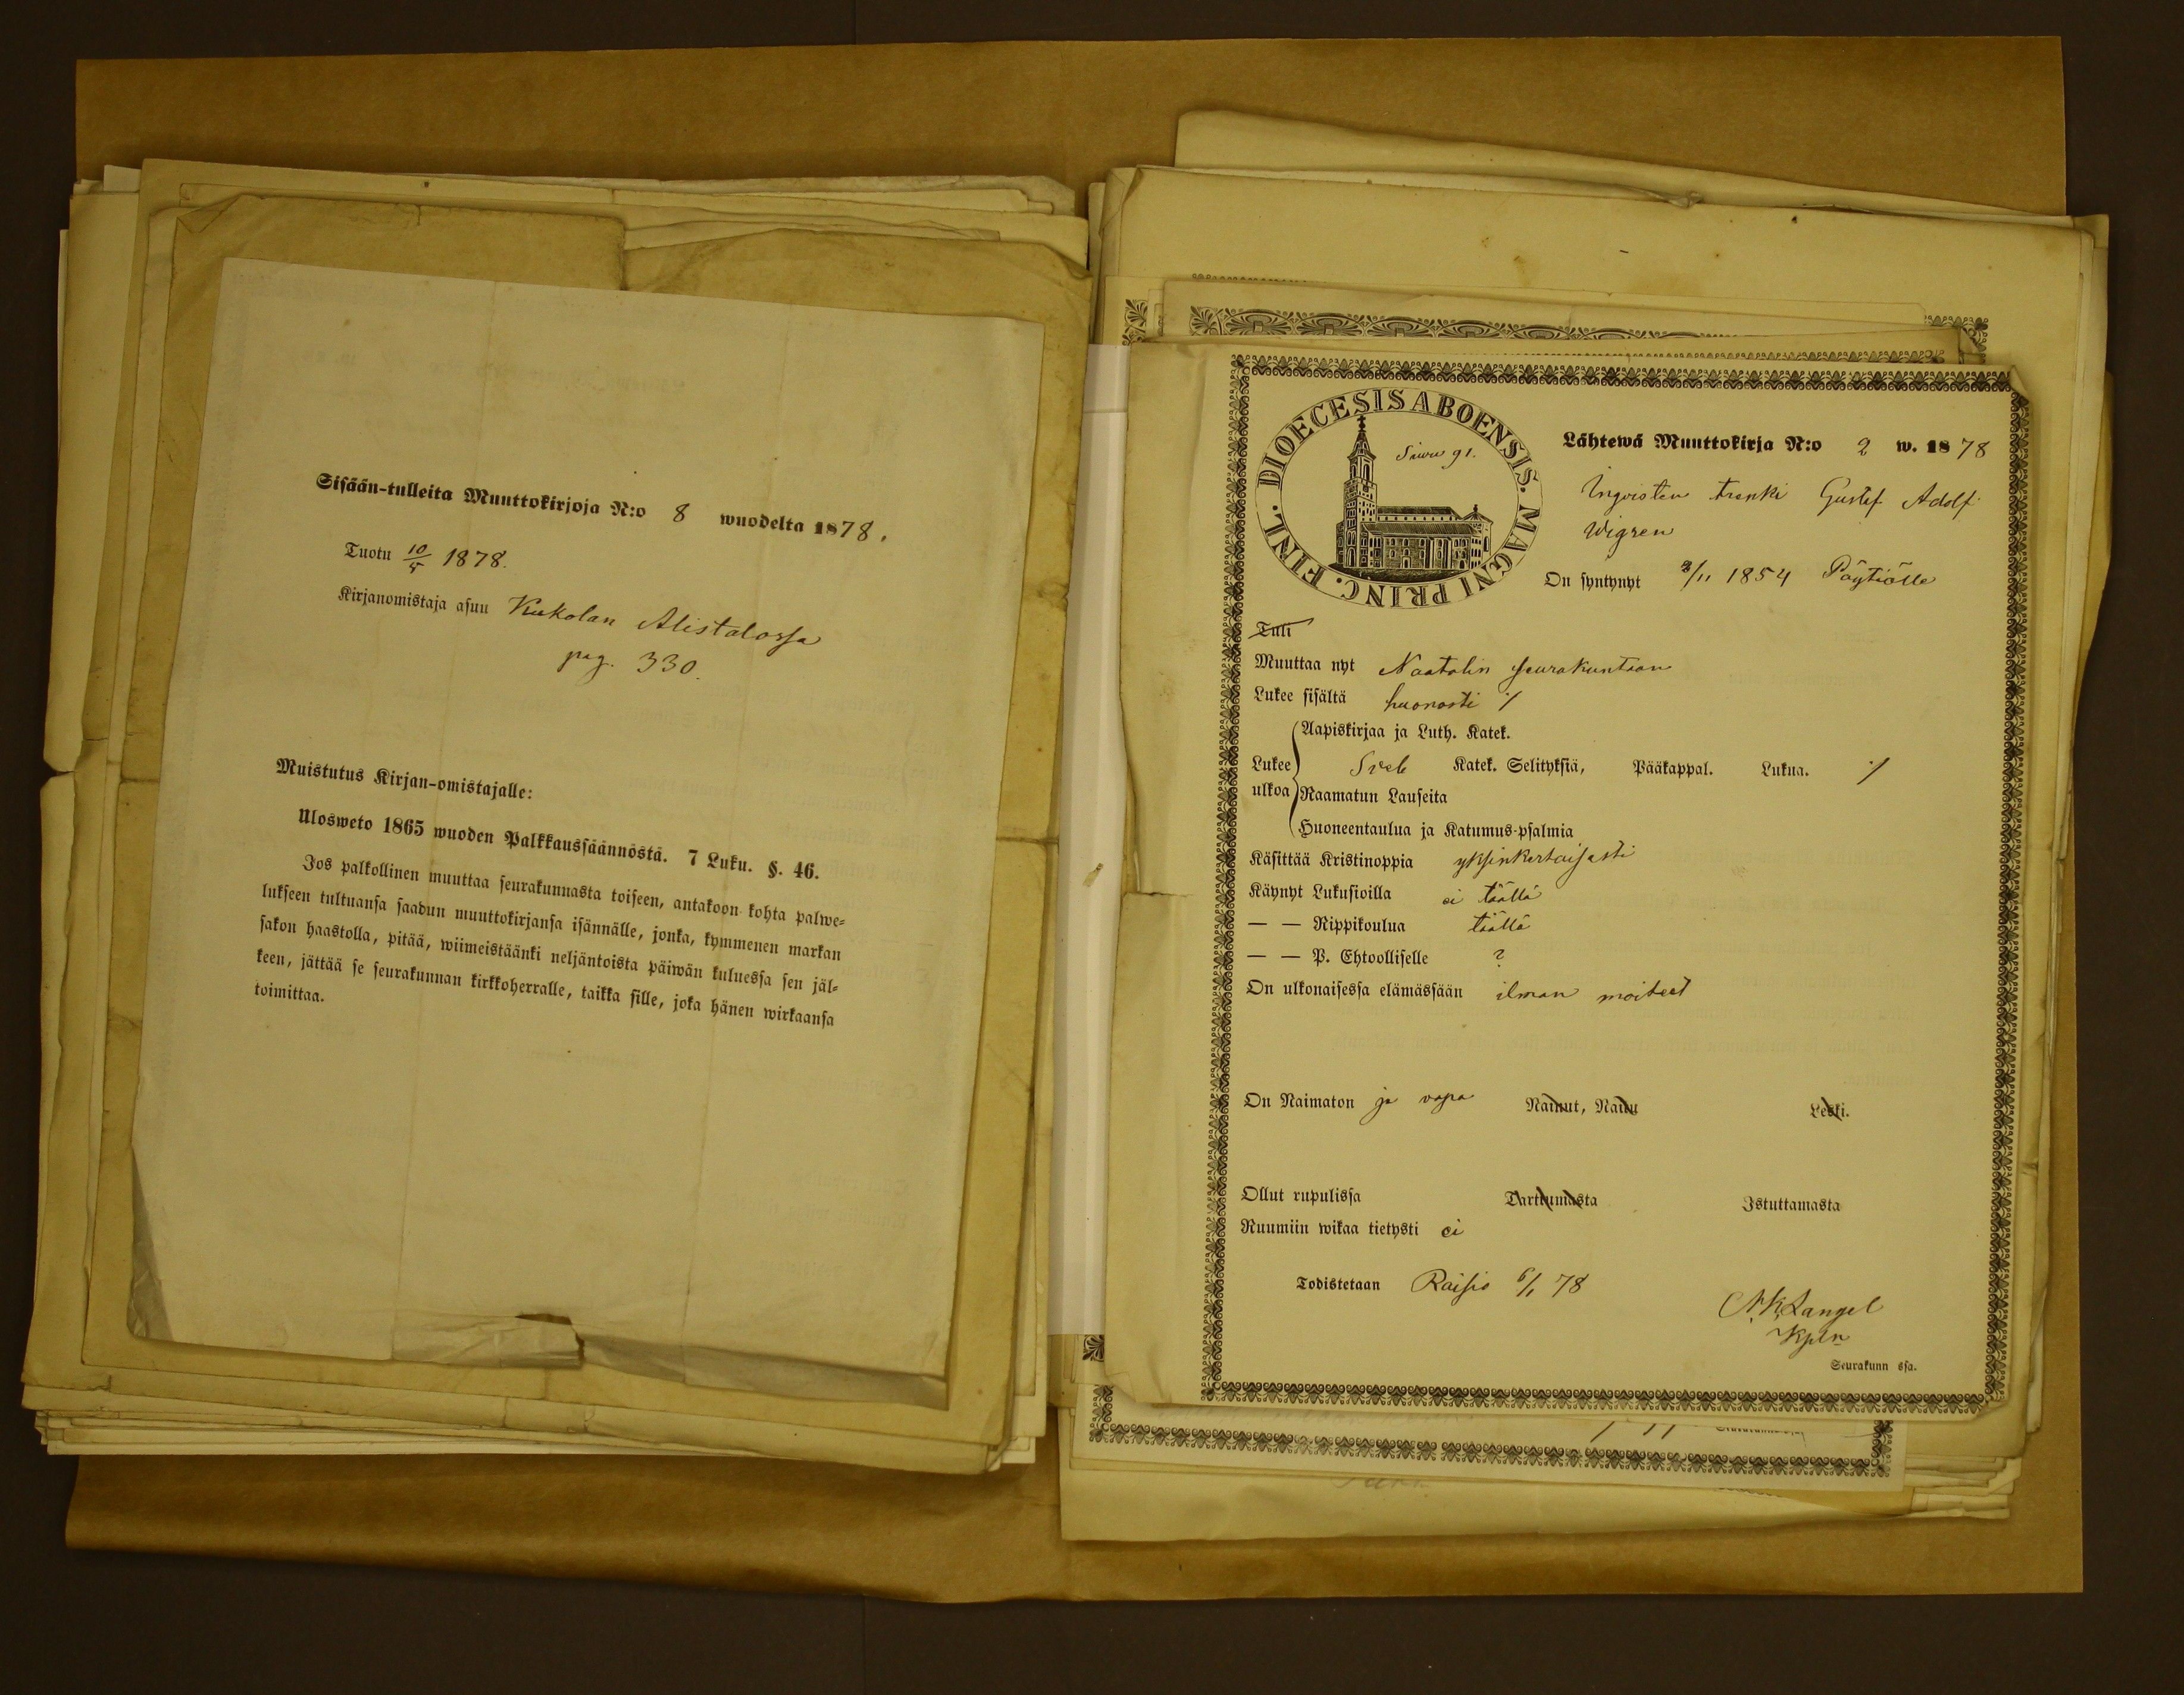 Sisään-tulleita Muuttokirjoja N:o 8 wuodelta 1878.
Tuotu 10/5 1878.
Kirjanomistaja asuu Kukolan Alistalossa
pag. 330.
Muistutus Kirjan-omistajalle:
Ulosweto 1865 wuoden Palkkaussäännöstä. 7 Luku. §. 46.
Jos palkollinen muuttaa seurakunnasta toiseen, antakoon kohta palwe-
lukseen tultuansa saadun muuttokirjansa isännälle, jonka, kymmenen markan
sakon haastolla, pitää, wiimeistäänki neljäntoista päiwän kuluessa sen jäl-
keen, jättää se seurakunnan kirkkoherralle, taikka sille, joka hänen wirkaansa
toimittaa.
DIOECESIS ABOENSIS. MAGNI PRINC. FINL.
Siwu 91.
Lähtewä Muuttokirja N:o 2 w. 1878
trenki Gustaf Adolf
Wigren
On syntynyt /11 1854 Pöytiälle
Tuli
Muuttaa nyt Naatalin seurakuntaan
Lukee sisältä huonosti ⁒
Aapiskirjaa ja Luth. Katek.
Lukee ulkoa Sveb Katek. Selityksiä, Pääkappal. Lukua. ⁒
Raamatun Lauseita
Huoneentaulua ja Katumus-psalmia
Käsittää Kristinoppia yksinkertaisesti
Käynyt Lukusioilla ei täällä
— — Rippikoulua täällä
— — P. Ehtoolliselle ?
On ulkonaisessa elämässään ilman moiteet
On Naimaton ja vapa Nainut, Naitu Leski.
Ollut rupulissa Tarttumasta Istuttamasta
Ruumiin wikaa tietysti ei
Todistetaan Raisio 6/1 78
Langel
Kpln
Seurakunn ssa.